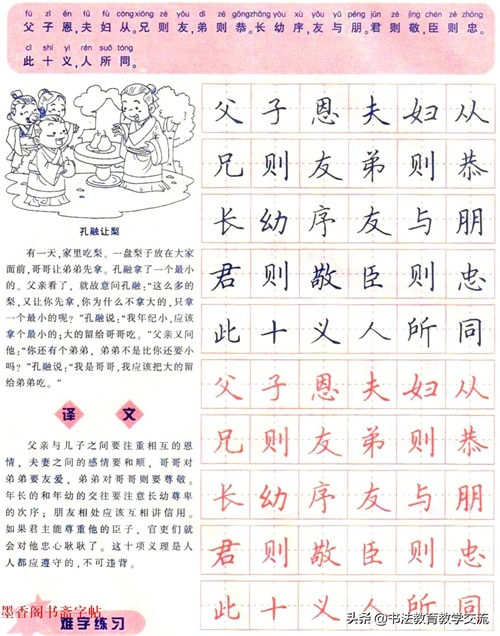 fù zǐ ēn, fū fù cóng xiōng zé yǒu dì zé gōng zhǎng yòu xù yǒu yǔ péng jūn zé jìng chén zé zhōng
父子恩,夫妇从。兄则友,弟则恭。长幼序,友与朋。君则敬,臣则忠。
cǐ shí yì rén suǒ tóng
此十义,人所同。
孔融让梨
有一天,家里吃梨。一盘梨子放在大家
面前,哥哥让弟弟先拿。孔融拿了一个最小
的。父亲看了,就故意问孔融:“这么多的
梨,又让你先拿,你为什么不拿大的,只拿
一个最小的呢?”孔融说:“我年纪小,应该
拿个最小的;大的留给哥哥吃。”父亲又问
他:“你还有个弟弟,弟弟不是比你还要小
吗?”孔融说:“我是哥哥,我应该把大的留
给弟弟吃。”
译 文
父亲与儿子之间要注重相互的恩
情,夫妻之间的感情要和顺,哥哥对
弟弟要友爱,弟弟对哥哥则要尊敬。
年长的和年幼的交往要注意长幼尊卑
的次序;朋友相处应该互相讲信用。
如果君主能尊重他的臣子,官吏们就
会对他忠心耿耿了。这十项义理是人
人都应遵守的,不可违背。
难字练习
父子恩夫妇从
兄则友弟则恭
长幼序友与朋
君则敬臣则忠
此十义人所同
父子恩夫妇从
兄则友弟则恭
长幼序友与朋
君则敬臣则忠
此十义人所同
墨香阁书斋字帖
头条@书法教育教学交流